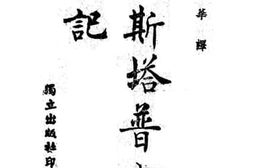 華譯
斯塔普
記
獨立出版社印